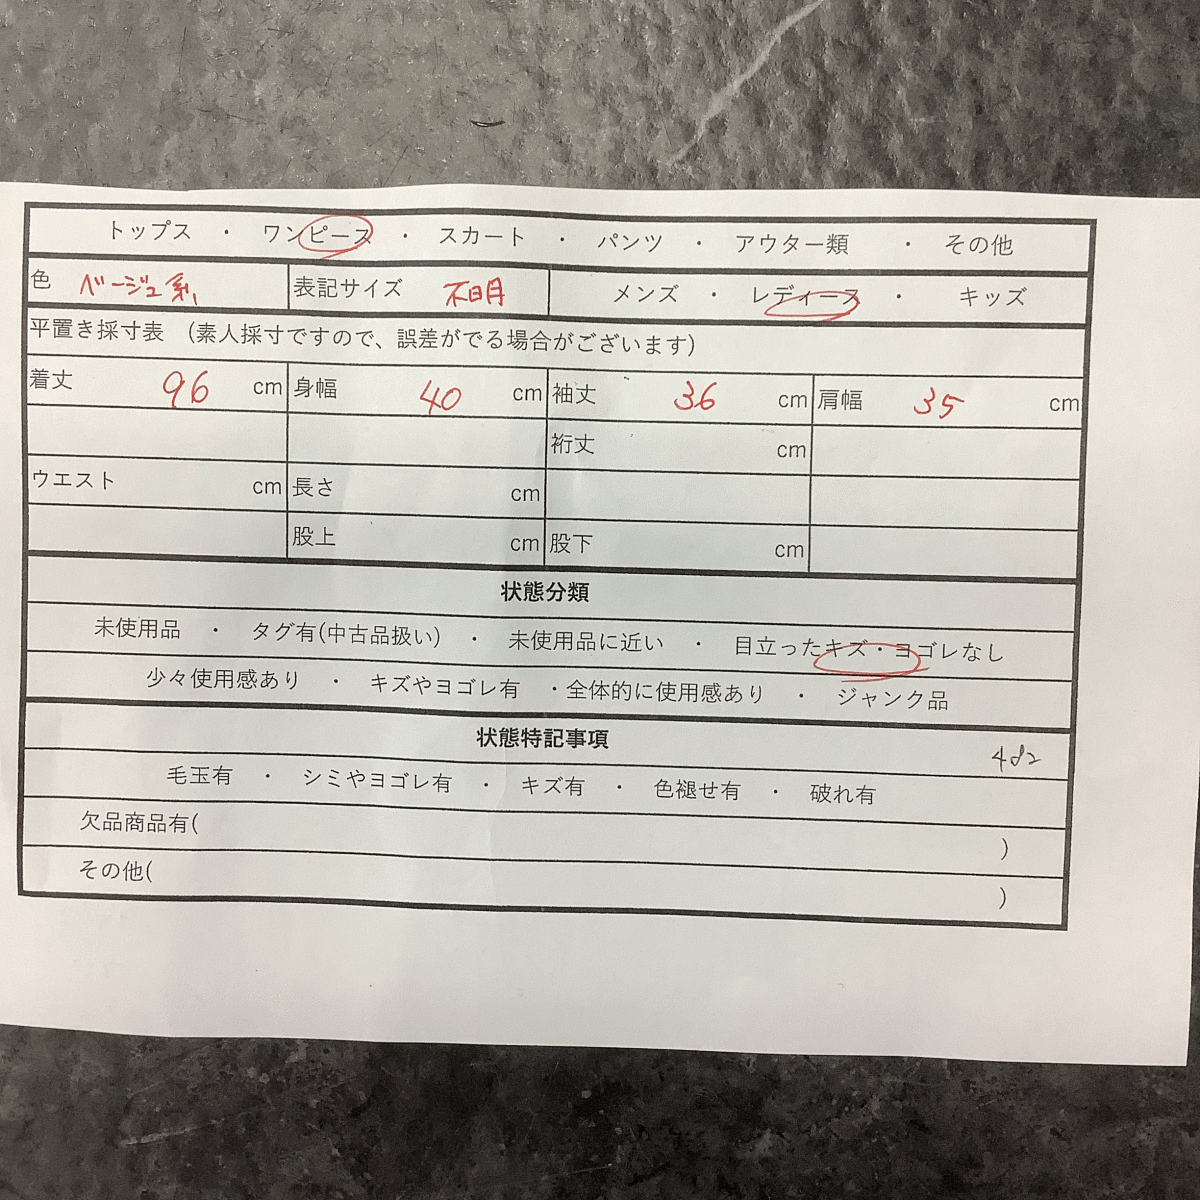 トップス ・ ワンピース ・ スカート ・ パンツ ・ アウター類 ・ その他
色 ベージュ系 表記サイズ 不明 メンズ ・ レディース ・ キッズ
平置き採寸表 (素人採寸ですので、誤差がでる場合がございます)
着丈 96 cm 身幅 40 cm 袖丈 36 cm 肩幅 35 cm
裄丈 cm
ウエスト cm 長さ cm
股上 cm 股下 cm
状態分類
未使用品 ・ タグ有(中古品扱い) ・ 未使用品に近い ・ 目立ったキズ・ヨゴレなし
少々使用感あり ・ キズやヨゴレ有 ・全体的に使用感あり ・ ジャンク品
状態特記事項
毛玉有 ・ シミやヨゴレ有 ・ キズ有 ・ 色褪せ有 ・ 破れ有
欠品商品有( )
その他( )